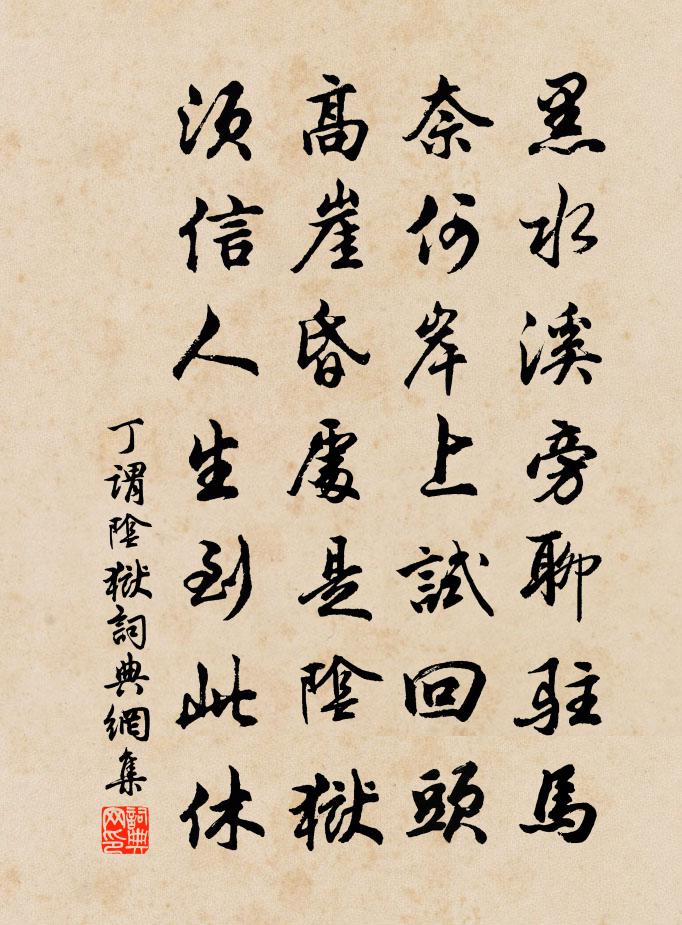 黑水溪旁聊駐馬
奈何岸上試回頭
高崖昏處是陰獄
須信人生到此休
丁謂陰獄詞典網集
詞典網印